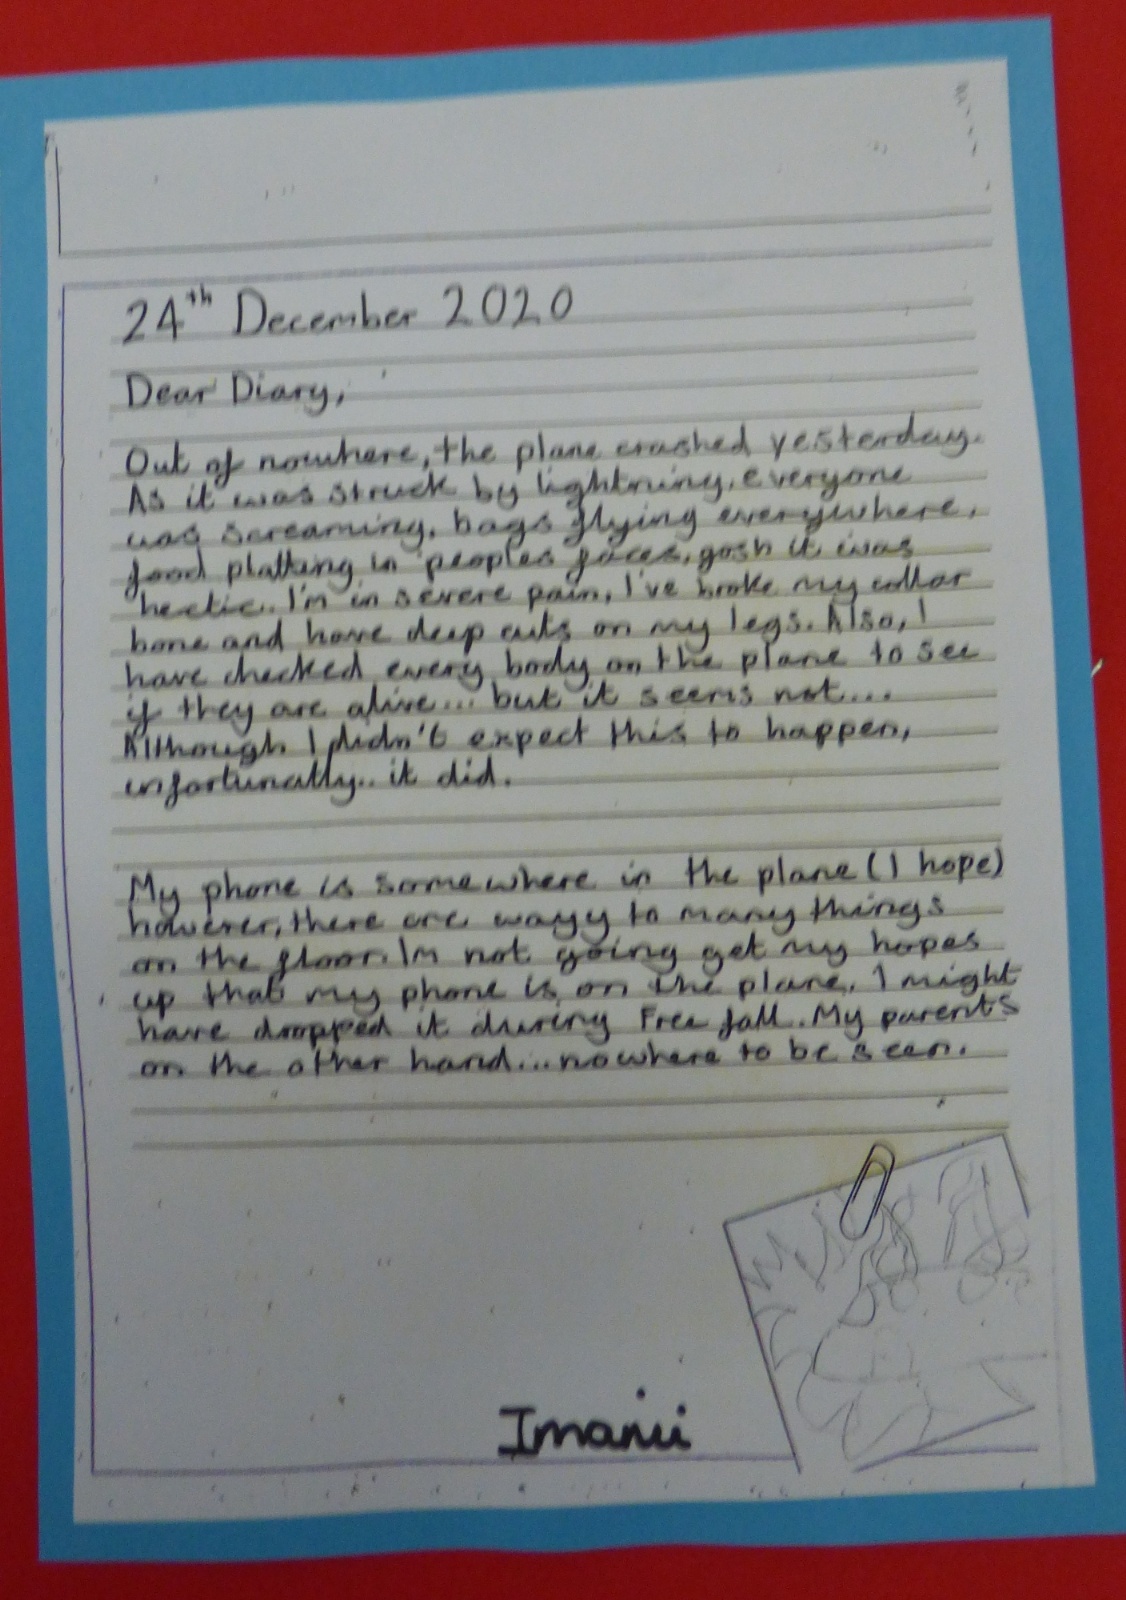 24th December 2020
Dear Diary,
Out of nowhere, the plane crashed yesterday.
As it was struck by lightning, everyone
was screaming, bags flying everywhere,
food platting in peoples faces, gosh it was
hectic.. I'm in severe pain, I've broke my collar
bone and have deep cuts on my legs. Also, I
have checked every body on the plane to see
if they are alive... but it seems not....
Although I didn't expect this to happen,
unfortunally.. it did.
My phone is somewhere in the plane (I hope)
however, there are wayy to many things
on the floor. Im not going get my hopes
up that my phone is on the plane. I might
have dropped it during Free fall. My parents
on the other hand... nowhere to be seen.